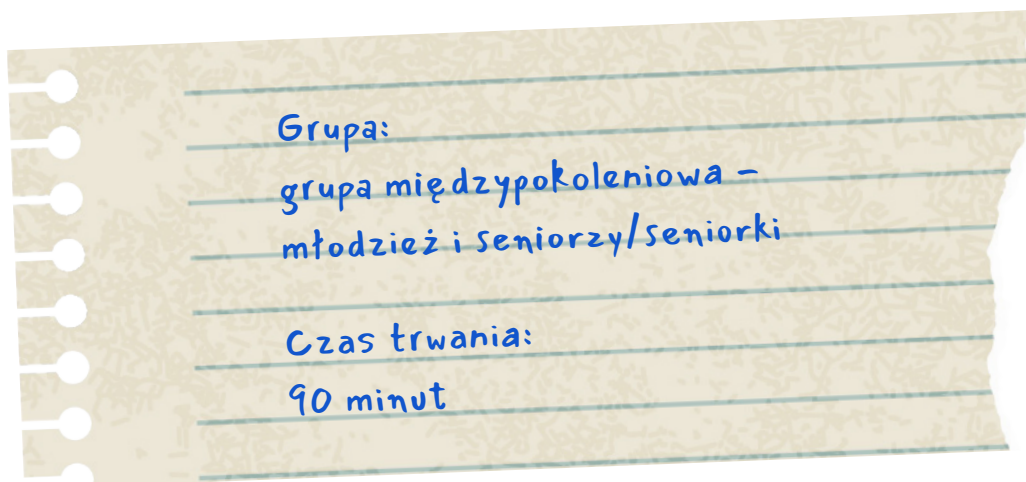 Grupa:
grupa międzypokoleniowa –
młodzież i seniorzy/seniorki
Czas trwania:
90 minut